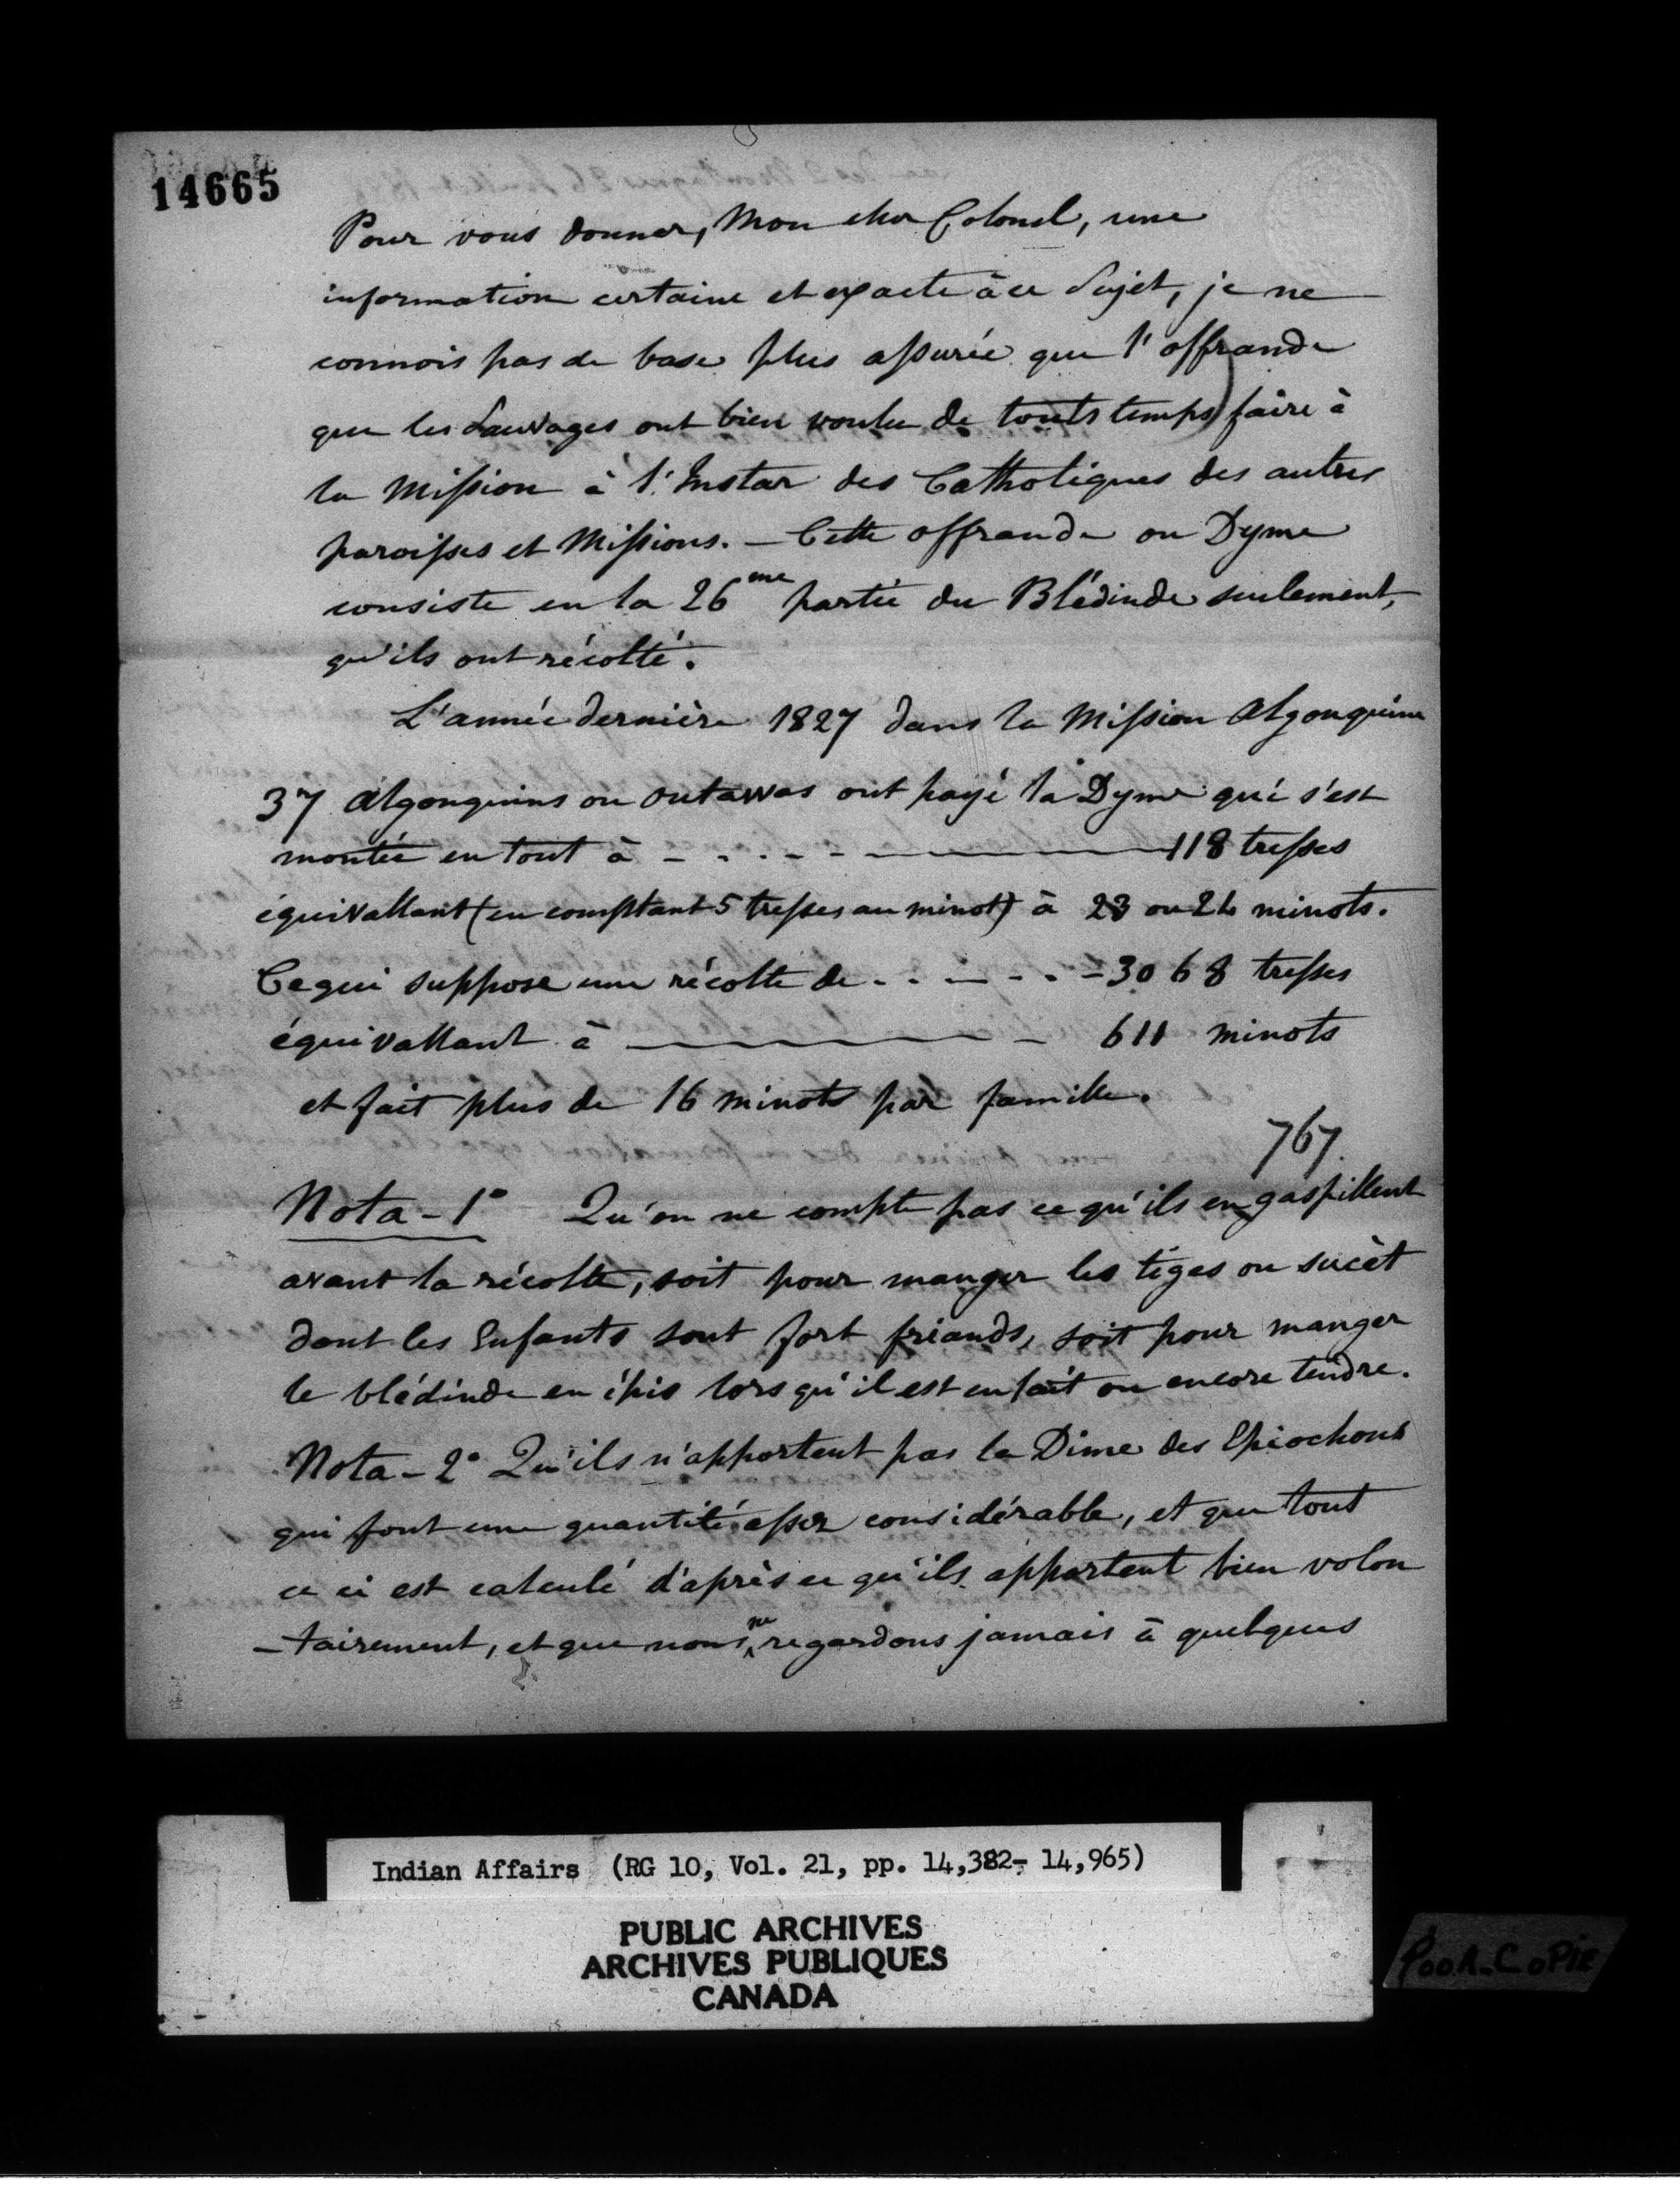 14665
Pour vous donner, Mon cher Colonel, une
information certaine et exacte à ce Sujet, je ne
connois pas de base plus assurée que l'offrande
que les Sauvages ont bien voulu de touts temps) faire à
la Mission à l'Instar des Catholiques des autres
paroisses et Missions. — Cette offrande ou Dyme
consiste en la 26me partie du Blédinde seulement,
qu'ils ont récolté.
L'année dernière 1827 dans la Mission Algonquine
37 Algonquins ou Outawas ont payé la Dyme qui s'est
montée en tout à - - - - - ——— 118 tresses
équivallant (en comptant 5 tresses au minot) à 23 ou 24 minots.
Ce qui suppose une récolte de - - - - - - 3068 tresses
équivallant à ——— - 611 minots
et fait plus de 16 minots par famille.
767.
Nota - 1° Qu'on ne compte pas ce qu'ils en gaspillent
avant la récolte, soit pour manger les tiges ou sucèt
dont les Enfants sont fort friands, soit pour manger
le blédinde en épis lorsqu'il est en lait ou encore tendre.
Nota - 2° Qu'ils n'apportent pas la Dime des Epiochons
qui font une quantité assez considérable, et que tout
ce ci est calculé d'après ce qu'ils apportent bien volon
- tairement, et que nous ne regardons jamais à quelques
Indian Affairs (RG 10, Vol. 21, pp. 14,382- 14,965)
PUBLIC ARCHIVES
ARCHIVES PUBLIQUES
CANADA
POOR-COPIE